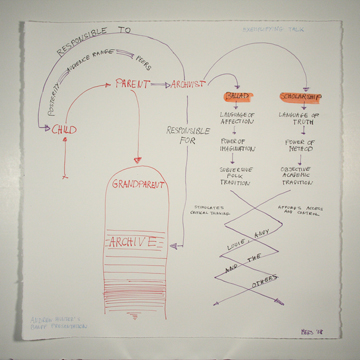 RESPONSIBLE TO
AUDIENCE RANGE
PEERS
PARENT
ARCHIVIST
CHILD
RESPONSIBLE
FOR
GRANDPARENT
ARCHIVE
BALLADS
LANGUAGE OF
AFFECTION
POWER OF
IMAGINATION
SUBVERSIVE
FOLK
TRADITION
SCHOLARSHIP
LANGUAGE OF
TRUTH
POWER OF
METHOD
OBJECTIVE
ACADEMIC
TRADITION
AFFORDS ACCESS
AND CONTROL
LOVE
AND THE
OTHERS